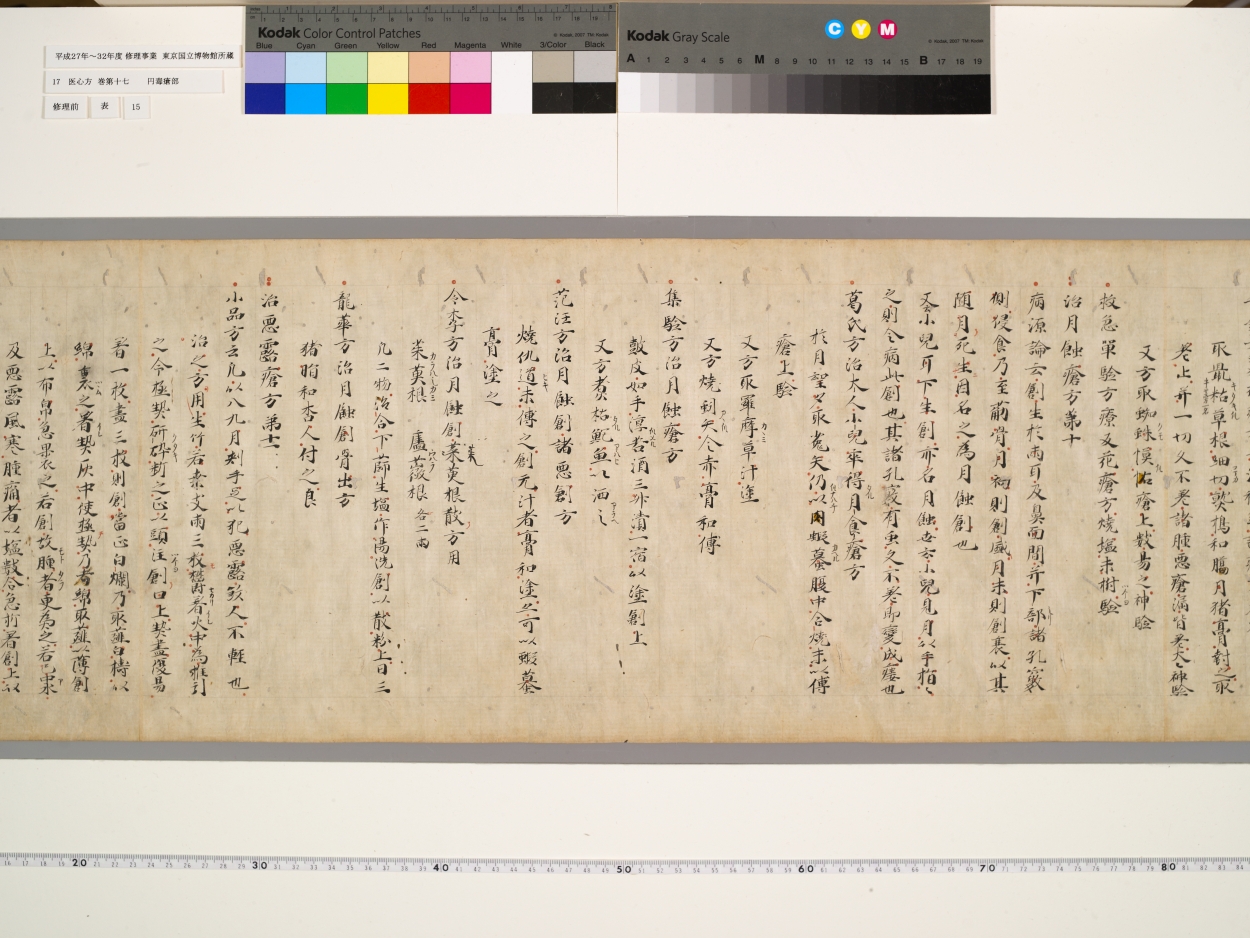 平成27年～32年度 修理事業 東京国立博物館所蔵
17 医心方 巻第十七 丹毒瘡部
修理前 表 15
Kodak Color Control Patches
Blue Cyan Green Yellow Red Magenta White 3/Color Black
Kodak Gray Scale
C Y M
A 1 2 3 4 5 6 M 8 9 10 11 12 13 14 15 B 17 18 19
取 枯草根細切 搗和臈月猪膏封之取
老止并一切久不老諸腫悪瘡 皆老大神驗
又方取蜘蛛 瘡上數易之神驗
救急單驗方療反花瘡方燒塩末樹驗
治月蝕瘡方第十
病源論云創生於兩耳及鼻面間并下部諸孔竅
側侵食乃至筋骨月初則創盛月末則創衰以其
随月死生因名之為月蝕創也
又小兒耳下生創亦名月蝕世云小兒見月以手指
之則令病此創也其諸孔竅有虫久不老即變成瘻也
葛氏方治大人小兒卒得月食瘡方
於月望夕取兔矢仍以内蝦蟇腹中合燒末以傅
瘡上驗
又方取羅摩草汁塗
又方燒 矢令赤膏和傅
集驗方治月蝕瘡方
皷皮如手 苦酒三升漬一宿以塗創上
又方煮枯鮑魚以洒之
范汪方治月蝕創諸悪創方
燒 末傅之創无汁者膏和塗之可以蝦蟇
膏塗之
令李方治月蝕創茱萸根散方用
茱萸根 廬 根各二兩
凡二物治合下篩生塩作湯洗創以散粉上日三
龍華方治月蝕創骨出方
猪 和杏人付之良
治悪露瘡方第十一
小品方云凡以八九月刺手足以犯悪露致人不輕也
治之方用生竹若桑支兩三枚 著火中為推引
之令極熱斫斷之正以頭注創口上熱盡復易
著一枚盡三枚則創當正白爛乃取薤白擣以
綿裹之著熱灰中使極熱乃著綿取薤以薄創
上以布帛急 之若創故腫者更為之若
及悪露風寒腫痛者以塩數合急折著創上以
20 30 40 50 60 70 80